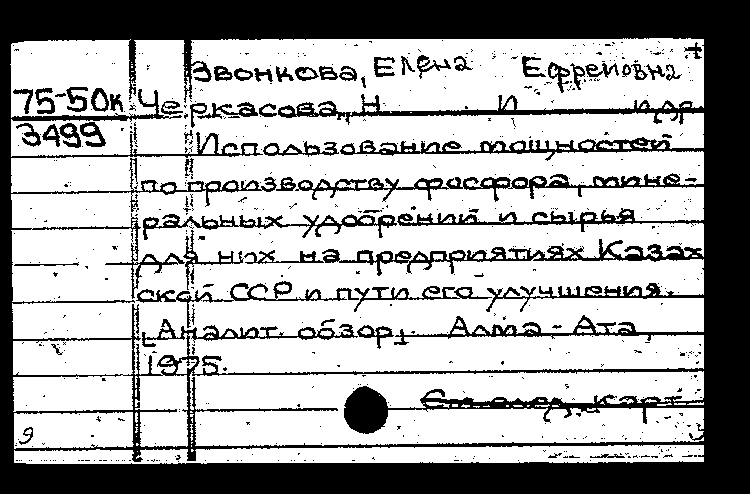 Звонкова, Елена Ефремовна
75-50к Черкасова, Н И и др.
3499
Использование мощностей
по производству фосфора, мине-
ральных удобрений и сырья
для них на предприятиях Казах
ской ССР и пути его улучшения.
[Аналит. обзор]. Алма-Ата,
1975.
См. след. карт
9